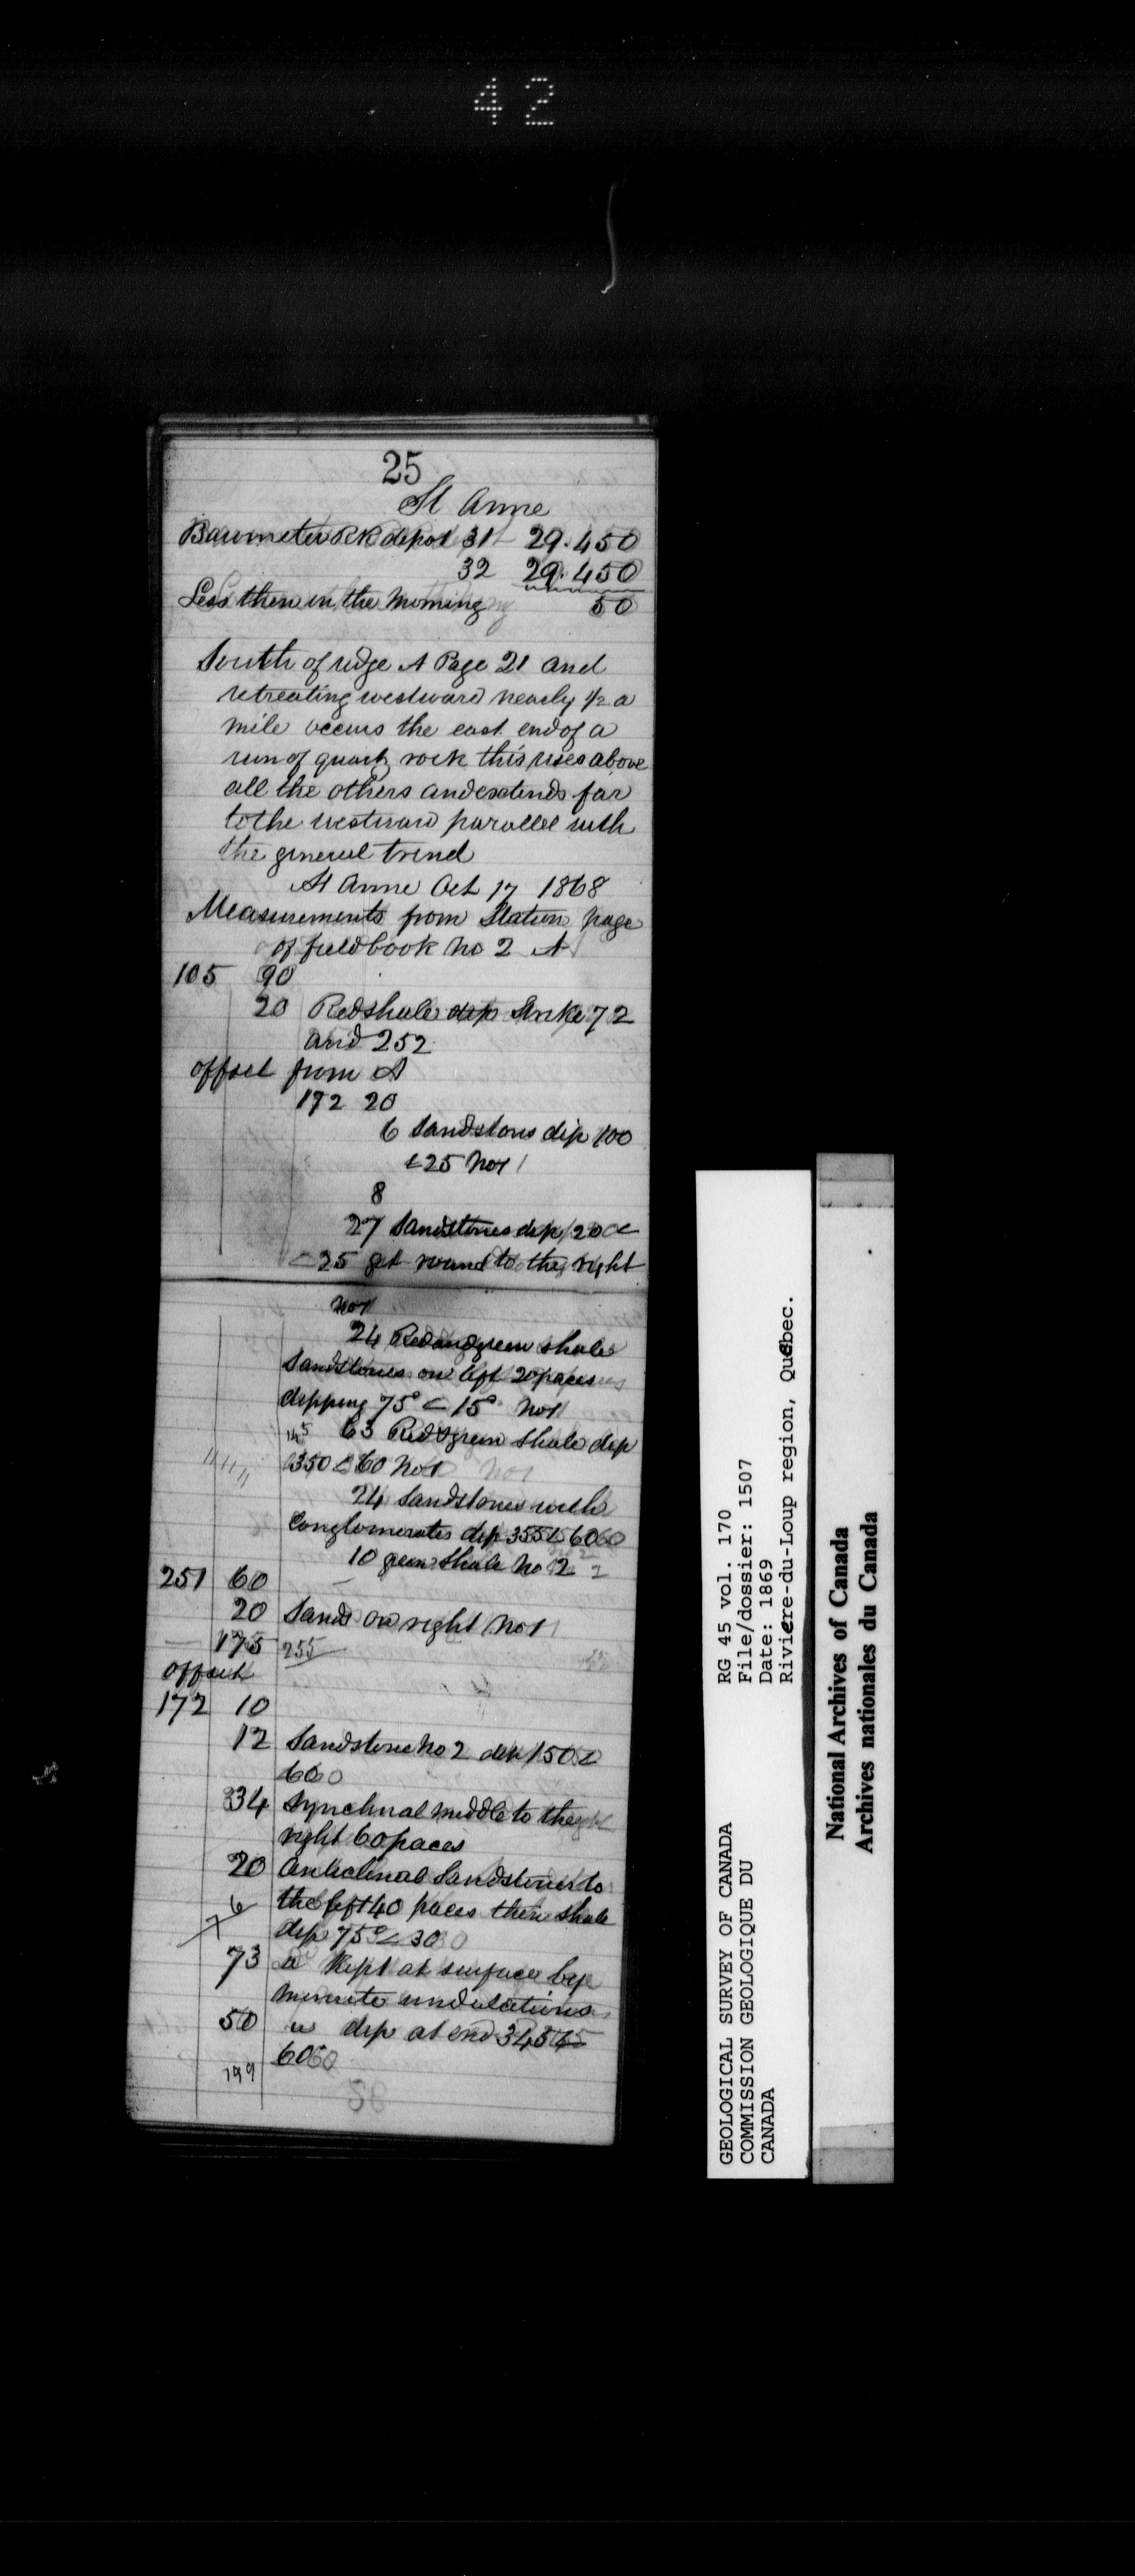 42
25
St Anne
Barometer RR depot 31 29.450
32 29.450
Less then in the morning 50
South of ridge A Page 21 and
retreating westward nearly 1/2 a
mile occurs the east end of a
run of quartz rock this rises above
all the others and extends far
to the westward parallel with
the general trend
St Anne Oct 17 1868
Measurements from Station page
of field book No 2 A
105 90
20 Red shale dip Strike 72
and 252
offset from A
172 20
6 Sandstones dip 100
< 25 No 1
8
27 Sandstones dip 120
< 25 get round to the right
No 1
24 Red and green shale
Sandstones on left 20 paces
dipping 75° < 15° No 1
145 63 Red & green shale dip
350 < 60 No 1
24 Sandstones with
Conglomerates dip 355 < 60
10 green shale No 2
251 60
20 Sands on right No 1
175 255
offset
172 10
12 Sandstone No 2 dip 150 <
60
34 Synclinal middle to the
right 60 paces
20 Anticlinal Sandstones to
the left 40 paces then shale
6
dip 75° < 30
73 a kept at surface by
minute undulations
50 a dip at end 345 <
60
199
GEOLOGICAL SURVEY OF CANADA
COMMISSION GEOLOGIQUE DU
CANADA
RG 45 vol. 170
File/dossier: 1507
Date: 1869
Riviere-du-Loup region, Québec.
National Archives of Canada
Archives nationales du Canada